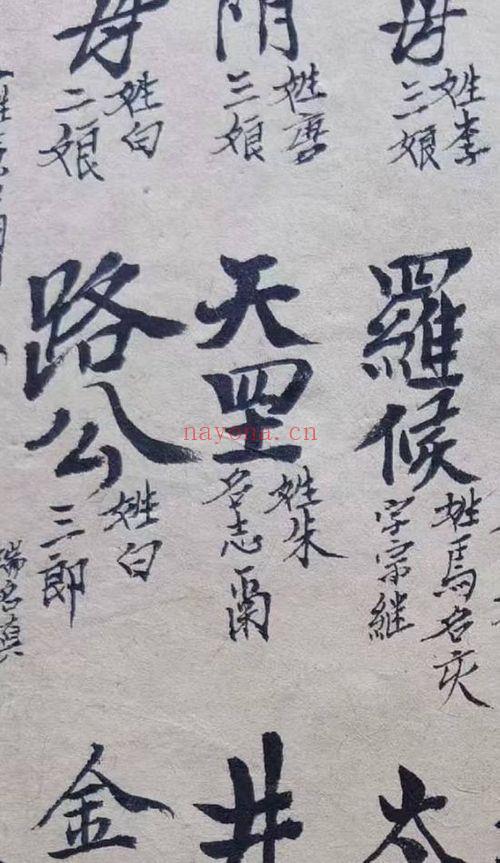 母
姓李
三娘
羅候
姓馬名灾
字宗継
太
門
三娘
天罡
姓朱
名志
井
母
姓白
二娘
路公
姓白
三郎
金
瑞名真
nayona.cn